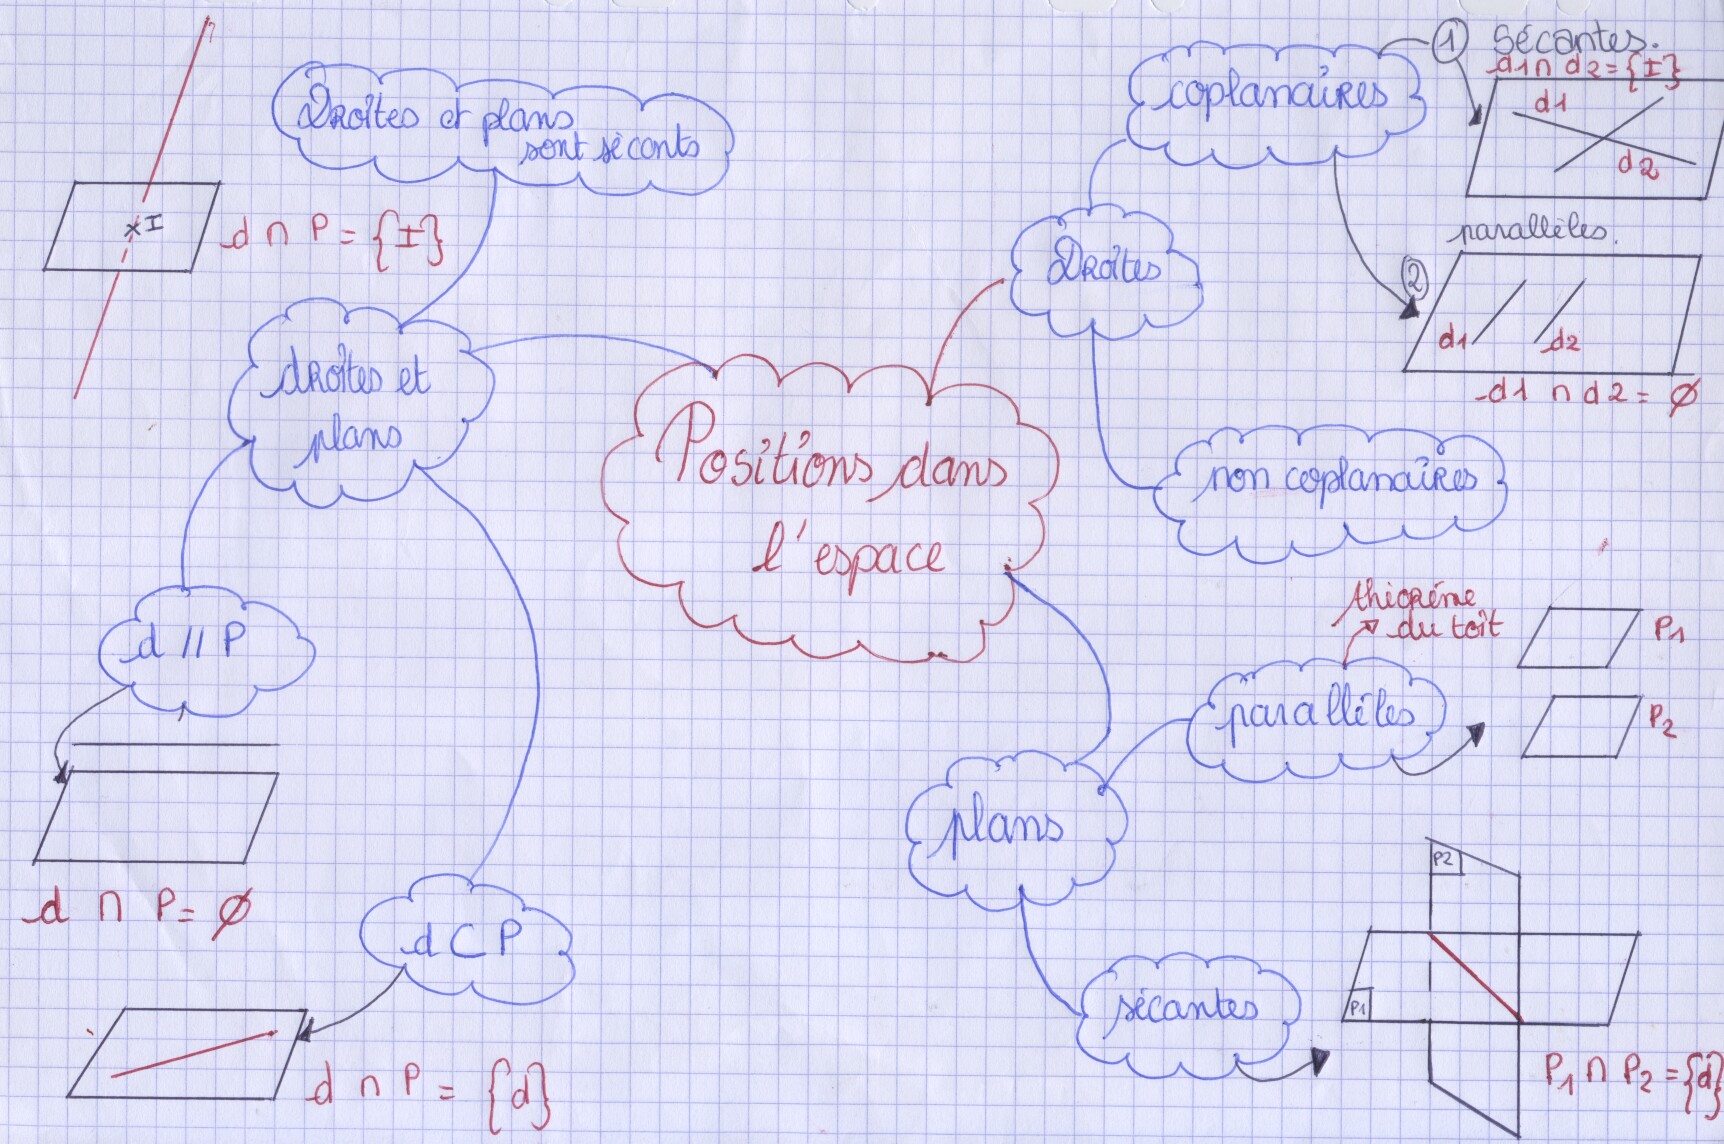 Positions dans
l'espace
Droîtes et plans
sont sécants
xI
d ∩ P = {I}
droîtes et
plans
d // P
d ∩ P = Ø
d C P
d ∩ P = {d}
Droîtes
coplanaires
① Sécantes.
d1 ∩ d2 = {I}
d1
d2
parallèles.
②
d1
d2
d1 ∩ d2 = Ø
non coplanaîres
plans
parallèles
théorème
du toît
P1
P2
sécantes
P2
P1
P1 ∩ P2 = {d}